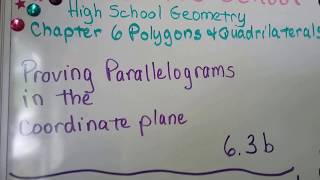 High School Geometry
Chapter 6 Polygons & Quadrilaterals
Proving Parallelograms
in the
Coordinate plane
6.3b